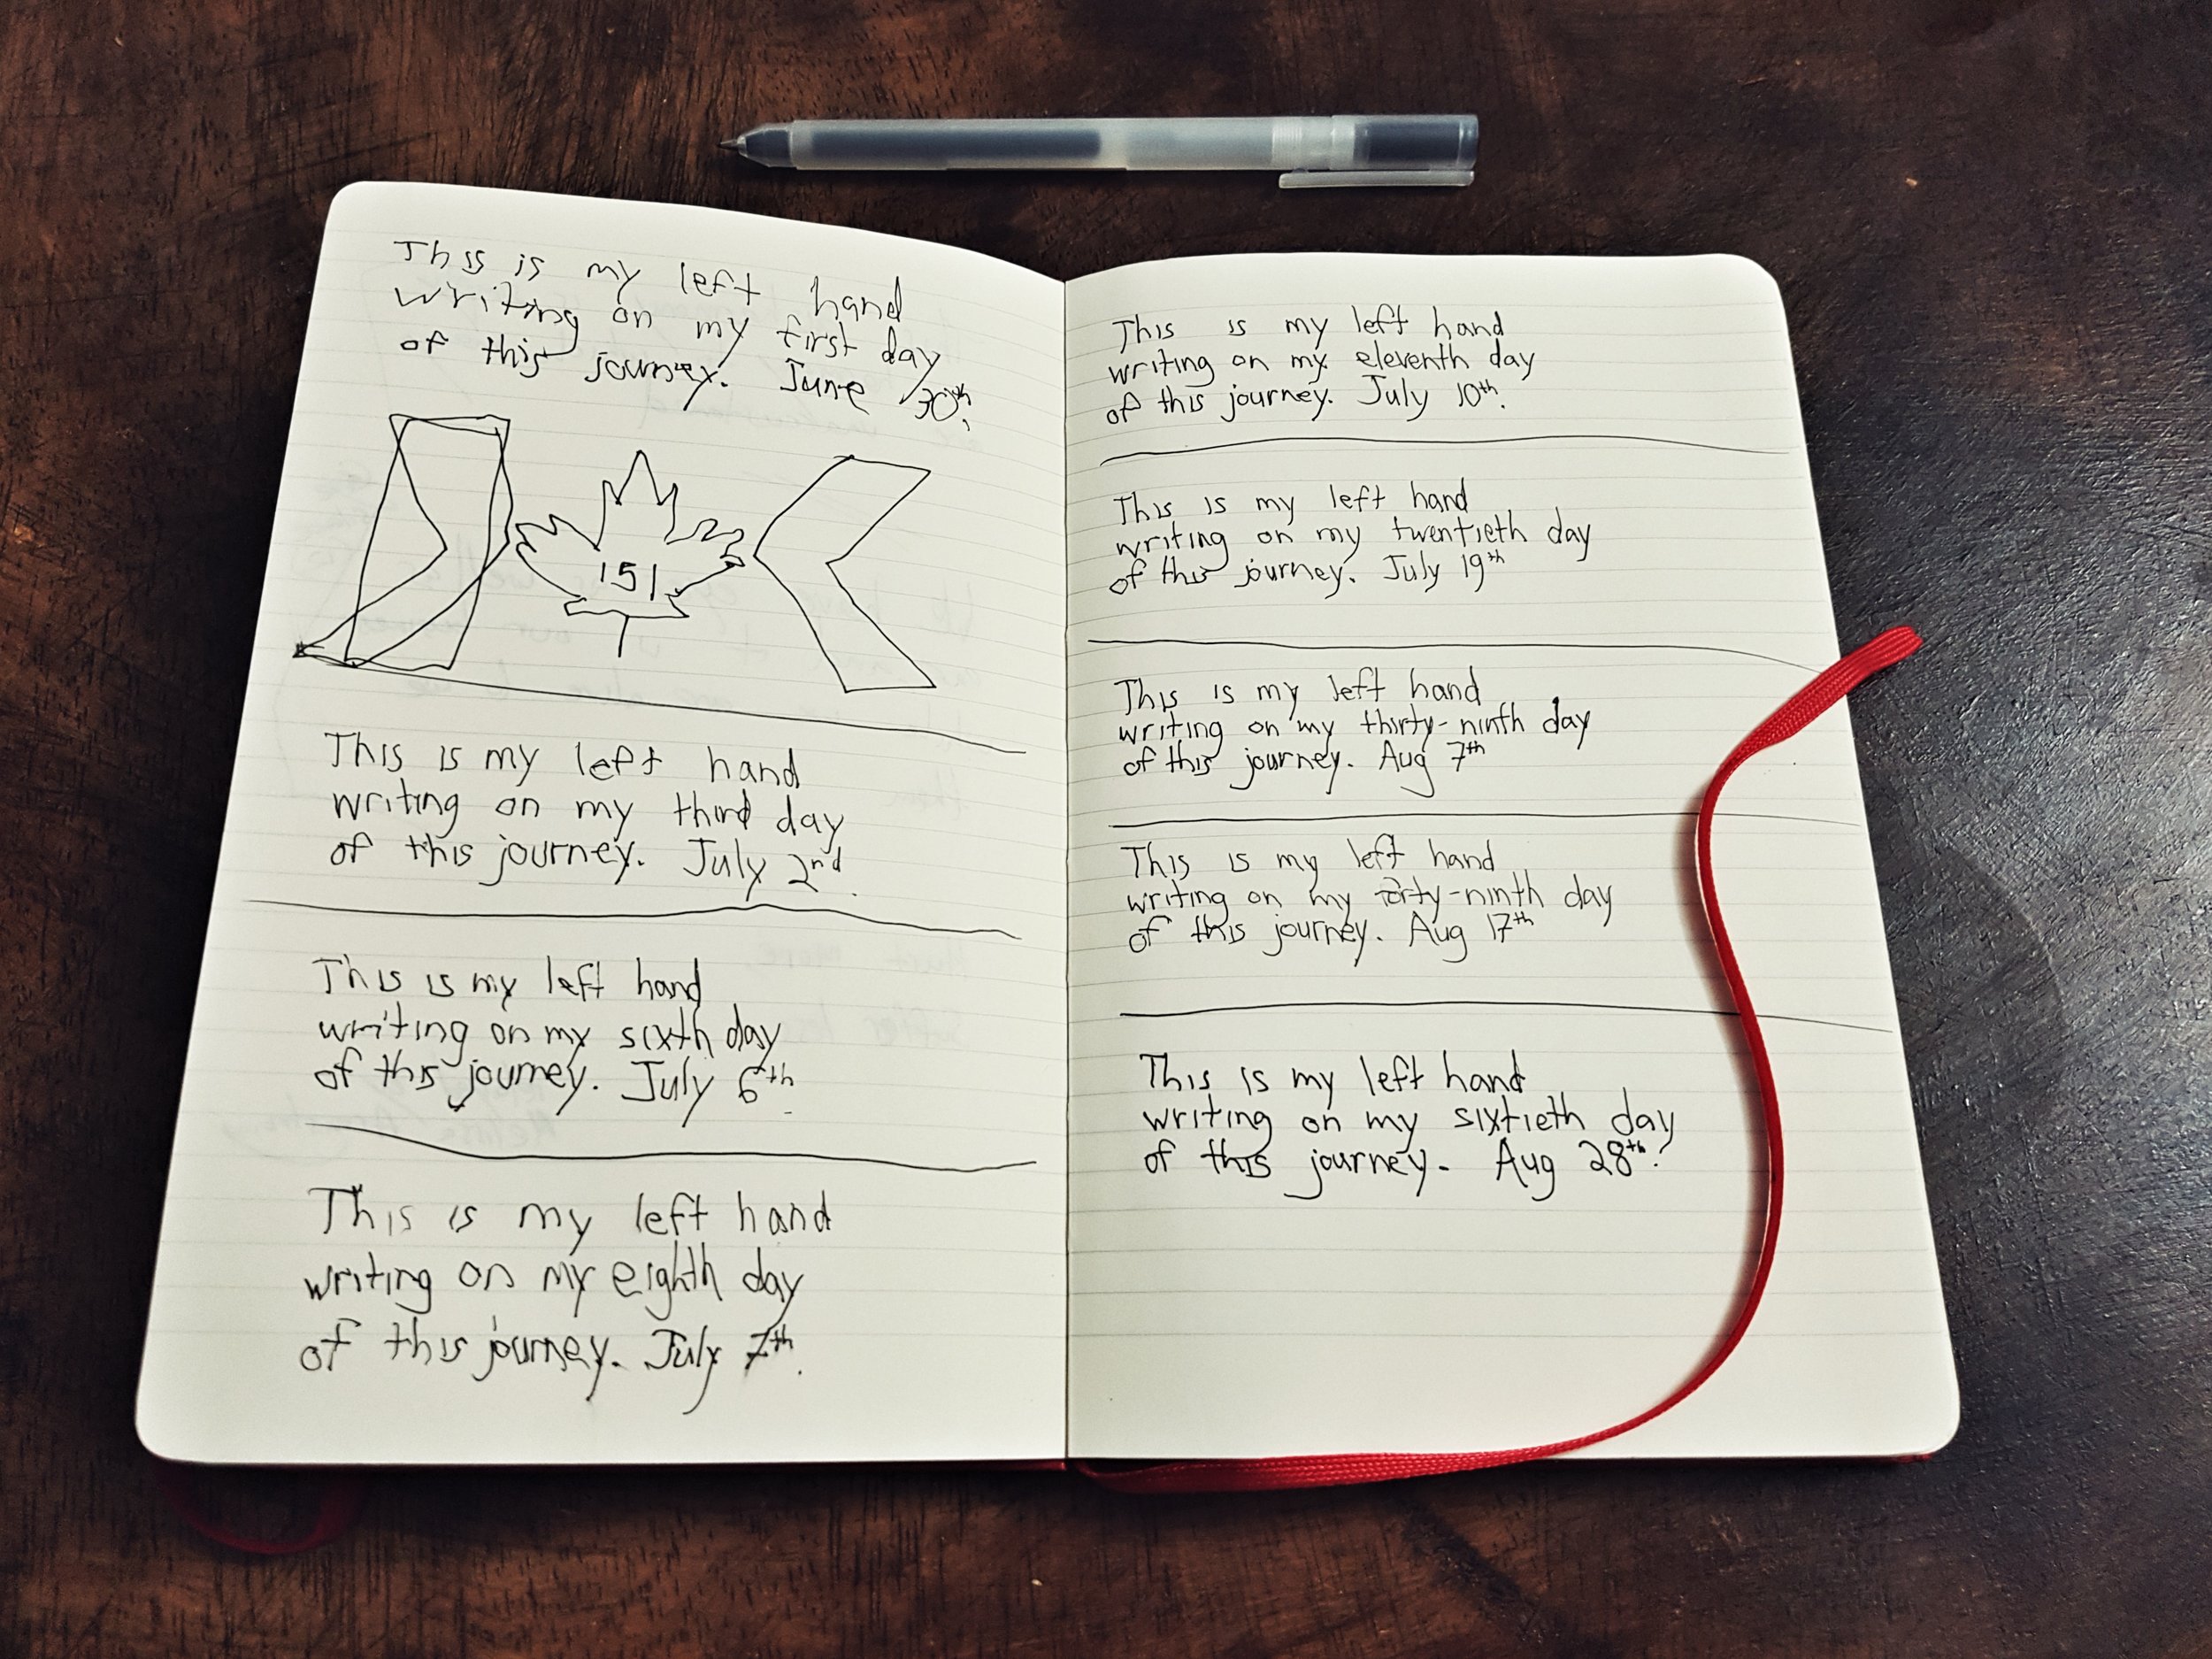 This is my left hand
writing on my first day
of this journey. June 30th.
151
This is my left hand
writing on my third day
of this journey. July 2nd.
This is my left hand
writing on my sixth day
of this journey. July 6th.
This is my left hand
writing on my eighth day
of this journey. July 7th.
This is my left hand
writing on my eleventh day
of this journey. July 10th.
This is my left hand
writing on my twentieth day
of this journey. July 19th
This is my left hand
writing on my thirty-ninth day
of this journey. Aug 7th
This is my left hand
writing on my forty-ninth day
of this journey. Aug 17th
This is my left hand
writing on my sixtieth day
of this journey. Aug 28th.